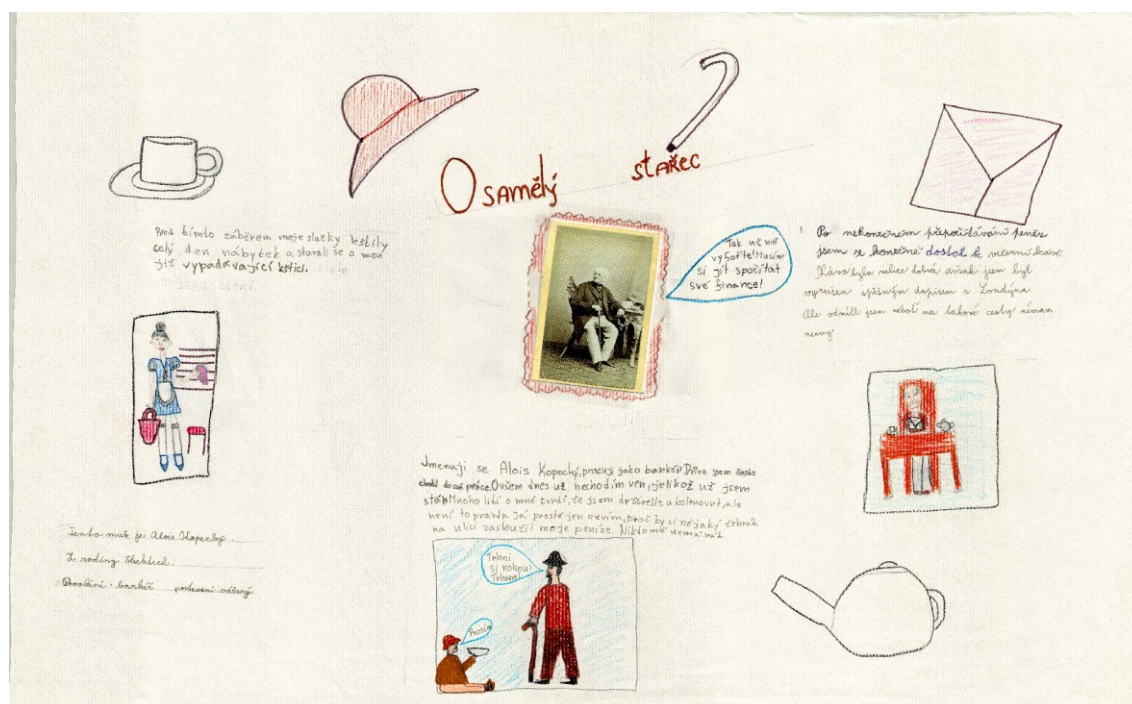 Osamělý stařec
Před tímto záběrem moje služky leštily
celý den nábytek a starali se o mou
již vypadávající kštici.
Tak už mě
vyfoťte! Musím
si jít spočítat
své finance!
Po nekonečném přepočítávání peněz
jsem se konečně dostal k večerní kávě.
Káva byla velice dobrá avšak jsem byl
vyrušen spěšným dopisem z Londýna.
Ale odmítl jsem neboť na takové cesty nemám
nervy
Jmenuji se Alois Kopecký, pracuji jako bankéř. Dříve jsem často
chodil do své práce. Ovšem dnes už nechodím ven, jelikož už jsem
stár. Mnoho lidí o mně tvrdí, že jsem držgrešle a, ale
není to pravda Já prostě jen nevím, proč by si nějaký žebrák
na ulici zasloužil moje peníze. Nikdo mě nemá rád.
Tento muž je Alois Kopecký.
Z rodiny šlechtické.
Povolání: bankéř postavení vážený
Trhni
si nohou!
Trhane!
Prosím